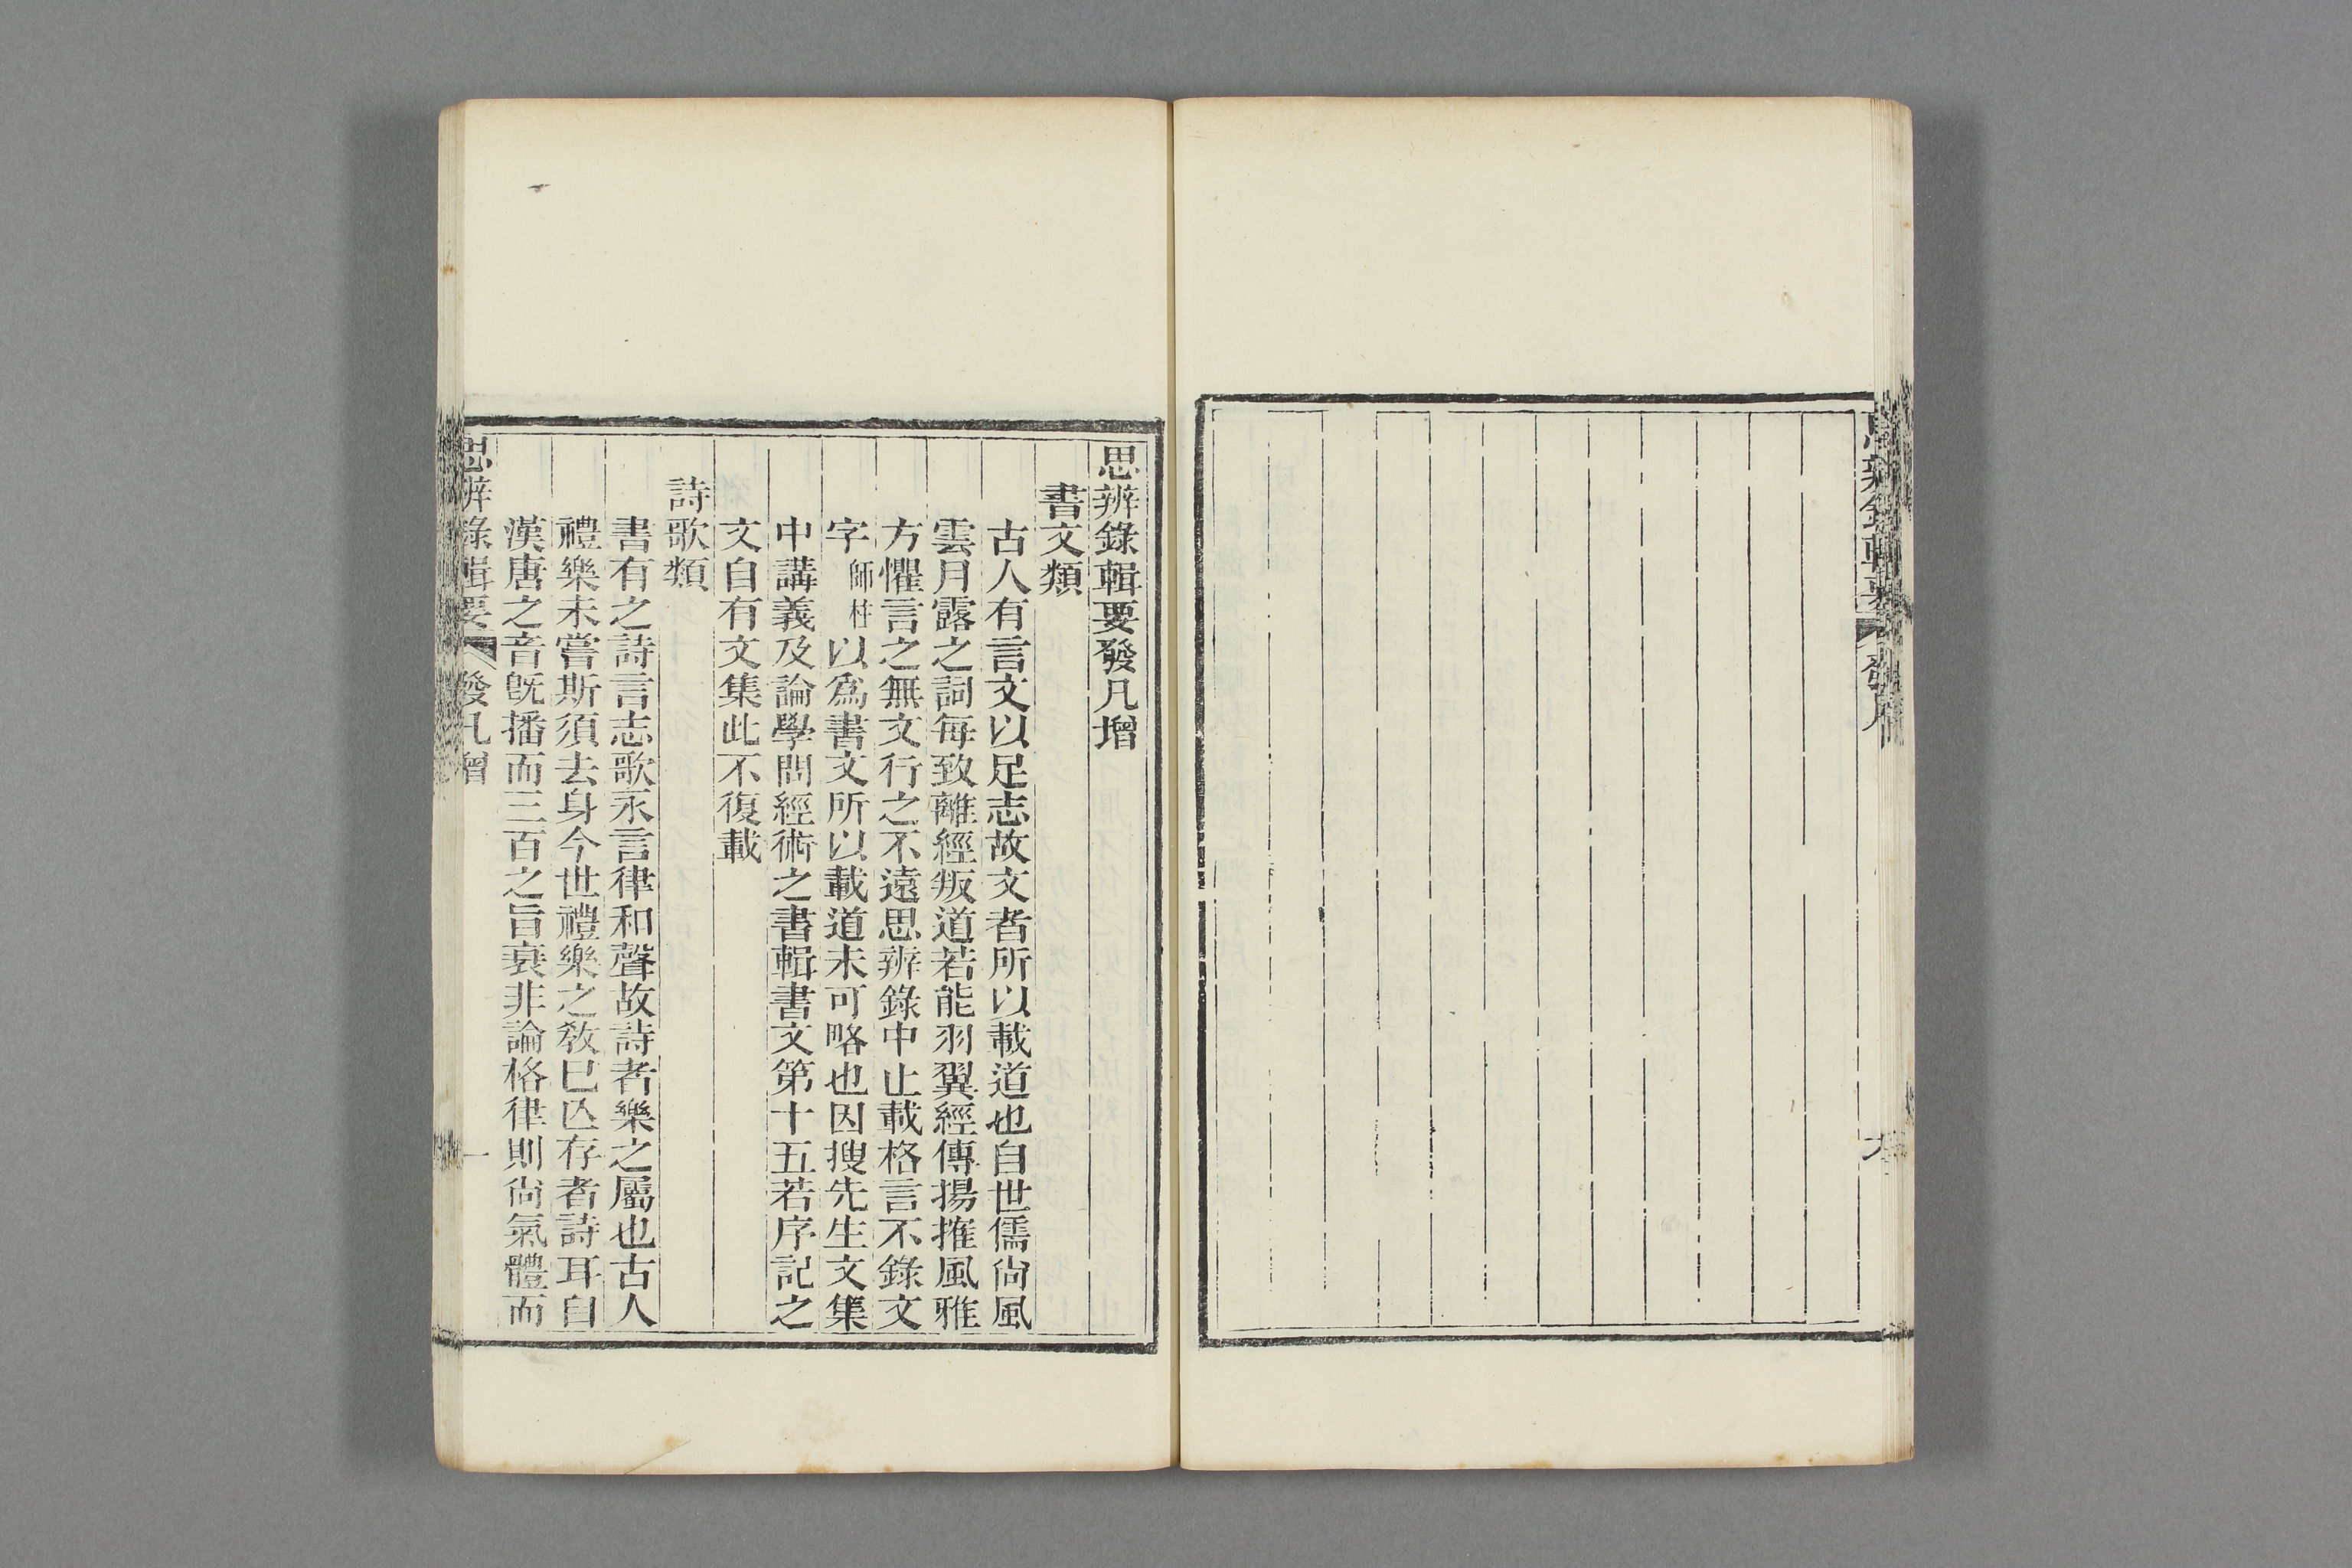 思辨錄輯要
思辨錄輯要發凡增
書文類
古人有言文以足志故文者所以載道也自世儒尙風
雲月露之詞每致離經叛道若能羽翼經傳揚搉風雅
方懼言之無文行之不遠思辨錄中止載格言不錄文
字師柱以爲書文所以載道未可略也因搜先生文集
中講義及論學問經術之書輯書文第十五若序記之
文自有文集此不復載
詩歌類
書有之詩言志歌永言律和聲故詩者樂之屬也古人
禮樂未嘗斯須去身今世禮樂之敎已亾存者詩耳自
漢唐之音旣播而三百之旨衰非論格律則尙氣體而
思辨錄輯要 發凡增 一